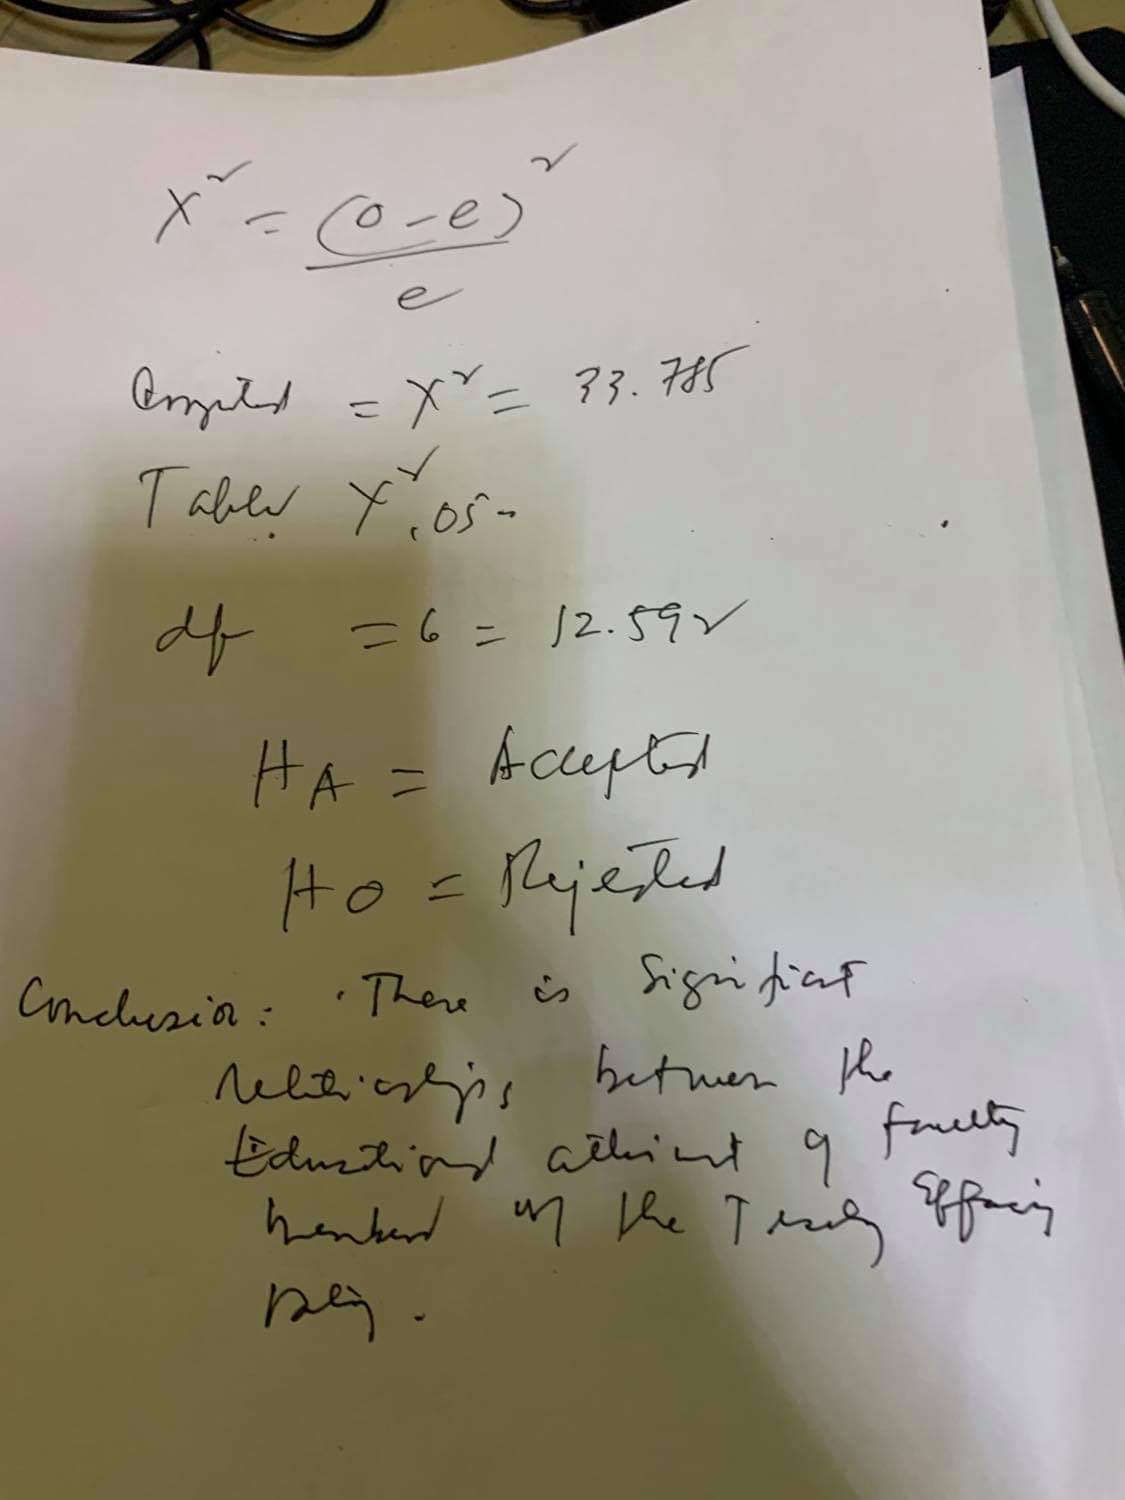 X² = (o - e)²
e
Computed = X² = 33.785
Table X² .05 -
df = 6 = 12.592
HA = Accepted
HO = Rejected
Conclusion: There is significant
relationships between the
Educational attainment of faculty
members on the Teaching Efficiency